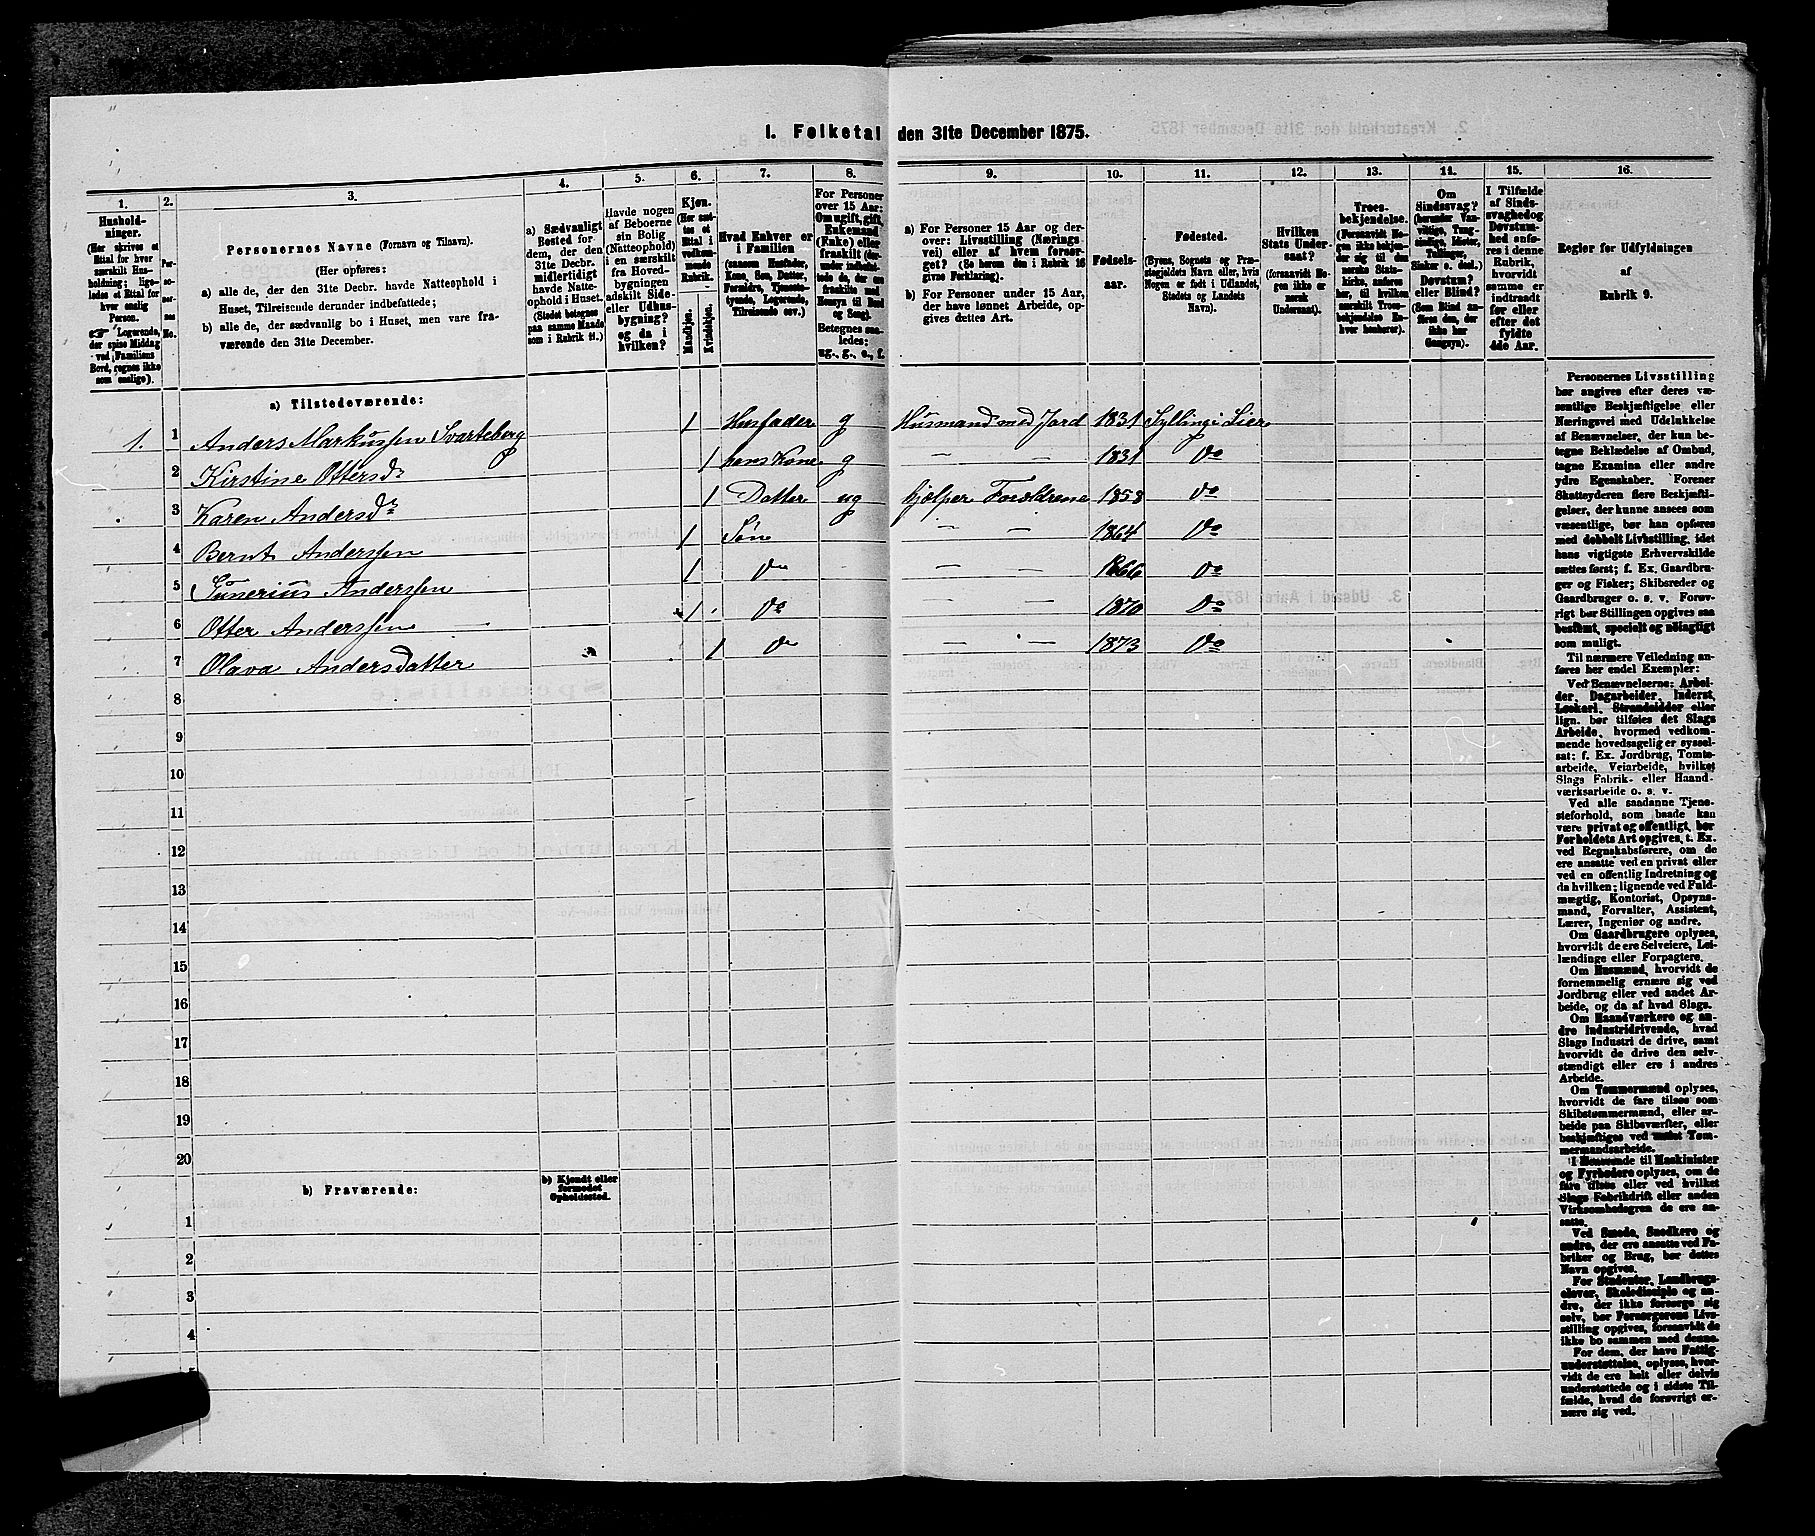 I. Folketal den 31te December 1875.
1. 2. 3. 4. 5. 6. 7. 8. 9. 10. 11. 12. 13. 14. 15. 16.
Hushold-
ninger.
(Her skrives et
Ettal for hver
særskilt Hus-
holdning; lige-
ledes et Ettal for
hver enslig
Person.
☞ Logerende,
der spise Middag
ved Familiens
Bord, regnes ikke
som enslige).
Personernes No.
Personernes Navne (Fornavn og Tilnavn).
(Her opføres:
a) alle de, der den 31te Decbr. havde Natteophold i
Huset, Tilreisende derunder indbefattede;
b) alle de, der sædvanlig bo i Huset, men vare fra-
værende den 31te December.
a) Sædvanligt
Bosted for
dem, der den
31te Decbr.
midlertidigt
havde Natte-
ophold i Huset.
(Stedet betegnes
paa samme Maade
som i Rubrik 11.)
Havde nogen
af Beboerne
sin Bolig
(Natteophold)
i en særskilt
fra Hoved-
bygningen
adskilt Side-
eller Udhus-
bygning?
og da i
hvilken?
Kjøn.
(Her sæt-
tes et
Ettal i
vedkom-
mende
Rubrik.
Mandkjøn.
Kvindekjøn.
Hvad Enhver er
i Familien
(saasom Husfader,
Kone, Søn, Datter,
Forældre, Tjeneste-
tyende, Logerende,
Tilreisende osv.)
For Personer
over 15 Aar:
Om ugift, gift,
Enkemand
(Enke) eller
fraskilt
Betegnes saa-
ledes:
ug., g., e., f.
a) For Personer 15 Aar og der-
over: Livsstilling (Nærings-
vei) eller af hvem forsør-
get? (Se herom den i Rubrik 16
givne Forklaring).
b) For Personer under 15 Aar,
der have lønnet Arbeide, op-
gives dettes Art.
Fødsels-
aar.
Fødested.
(Byens, Sognets og Præ-
stegjeldets Navn eller, hvis
Nogen er født i Udlandet,
Stedets og Landets
Navn).
Hvilken
Stats Under-
saat?
(forsaavidt No-
gen ikke er
norsk
Undersaat).
Troes-
bekjendelse.
(Forsaavidt No-
gen ikke bekjen-
der sig til den
norske Stats-
kirke, anføres
her, til hvilken
Troesbekjendelse En-
hver henhører).
Om
Sindssvag?
(herunder Van-
vittige, Tung-
sindige, Idioter,
Tullinger,
Sinker o. desl.)
Døvstum?
eller Blind?
(Som Blind an-
føres den, der
ikke har
Gangsyn).
I Tilfælde
af Sinds-
svaghed og
Døvstum-
hed anfø-
res i denne
Rubrik,
hvorvidt
samme er
indtraadt
før eller
efter det
fyldte
4de Aar.
Regler for Udfyldningen
af
Rubrik 9.
a) Tilstedeværende:
1. 1 Anders Markussen Svarteberg 1 Husfader g Husmand med Jord 1831 Sylling i Lier
2 Kirstine Ottersdr 1 hans Kone g — — 1831 Do
3 Karen Andersdr 1 Datter ug hjælper Forældrene 1858 Do
4 Bernt Anderssen 1 Søn — — 1864 Do
5 Sunerius Anderssen 1 Do — — 1866 Do
6 Otter Anderssen 1 Do — — 1870 Do
7 Olava Andersdatter 1 Do — — 1873 Do
8
9
10
11
12
13
14
15
16
17
18
19
20
b) Fraværende:
b) Kjendt eller
formodet
Opholdssted.
1
2
3
4
Personernes Livsstilling
bør angives efter deres væ-
sentlige Beskjæftigelse eller
Næringsvei med Udelukkelse
af Benævnelser, der kun be-
tegne Beklædelse af Ombud,
tagne Examina eller andre
ydre Egenskaber. Forener
Skatteyderen flere Beskjæfti-
gelser, der kunne ansees som
væsentlige, bør han opføres
med dobbelt Livsstilling, idet
hans vigtigste Erhvervskilde
sættes først; f. Ex. Gaardbru-
ger og Fisker; Skibsreder og
Gaardbruger o. s. v. Forøv-
rigt bør Stillingen opgives saa
bestemt, specielt og nøiagtigt
som muligt.
Til nærmere Veiledning an-
føres her endel Exempler:
Ved Benævnelserne: Arbei-
der, Dagarbeider, Inderst,
Løskarl, Strandsidder eller
lign. bør tilføies det Slags
Arbeide, hvormed vedkom-
mende hovedsagelig er syssel-
sat; f. Ex. Jordbrug, Tomte-
arbeide, Veiarbeide, hvilket
Slags Fabrik- eller Haand-
værksarbeide o. s. v.
Ved alle saadanne Tjene-
steforhold, som baade kan
være privat og offentligt, bør
Forholdets Art opgives, t. Ex.
ved Regnskabsførere, om de
ere ansatte ved en privat eller
ved en offentlig Indretning og
da hvilken; lignende ved Fuld-
mægtig, Kontorist, Opsyns-
mand, Forvalter, Assistent,
Lærer, Ingeniør og andre.
Om Gaardbrugere oplyses,
hvorvidt de ere Selveiere, Lei-
lændinge eller Forpagtere.
Om Husmænd, hvorvidt de
fornemmelig ernære sig ved
Jordbrug eller ved andet Ar-
beide, og da af hvad Slags.
Om Haandværkere og an-
dre Industridrivende, hvad
Slags Industri de drive, samt
hvorvidt de drive den selv-
stændigt eller ere i andres
Arbeide.
Om Tømmermænd oplyses,
hvorvidt de fare tilsøs som
Skibstømmermænd, eller ar-
beide paa Skibsværfter, eller
beskjæftiges ved andet Tøm-
mermandsarbeide.
I Henseende til Maskinister
og Fyrbødere oplyses, om de
fare tilsøs eller ved hvilket
Slags Fabrikdrift eller anden
Virksomhedsgren de ere an-
satte.
Ved Smede, Snedkere og
andre, der ere ansatte ved Fa-
briker og Brug, bør dettes
Navn opgives.
For Studenter, Landbrugs-
elever, Skoledisciple og an-
dre, der ikke forsørge sig
selv, bør Forsørgerens Livs-
stilling opgives, forsaavidt de
ikke bo sammen med denne.
For dem, der have Fattig-
understøttelse, oplyses, hvor-
vidt de ere helt eller delvis
understøttede og i sidste Til-
fælde, hvad de forøvrigt er-
nære sig ved.